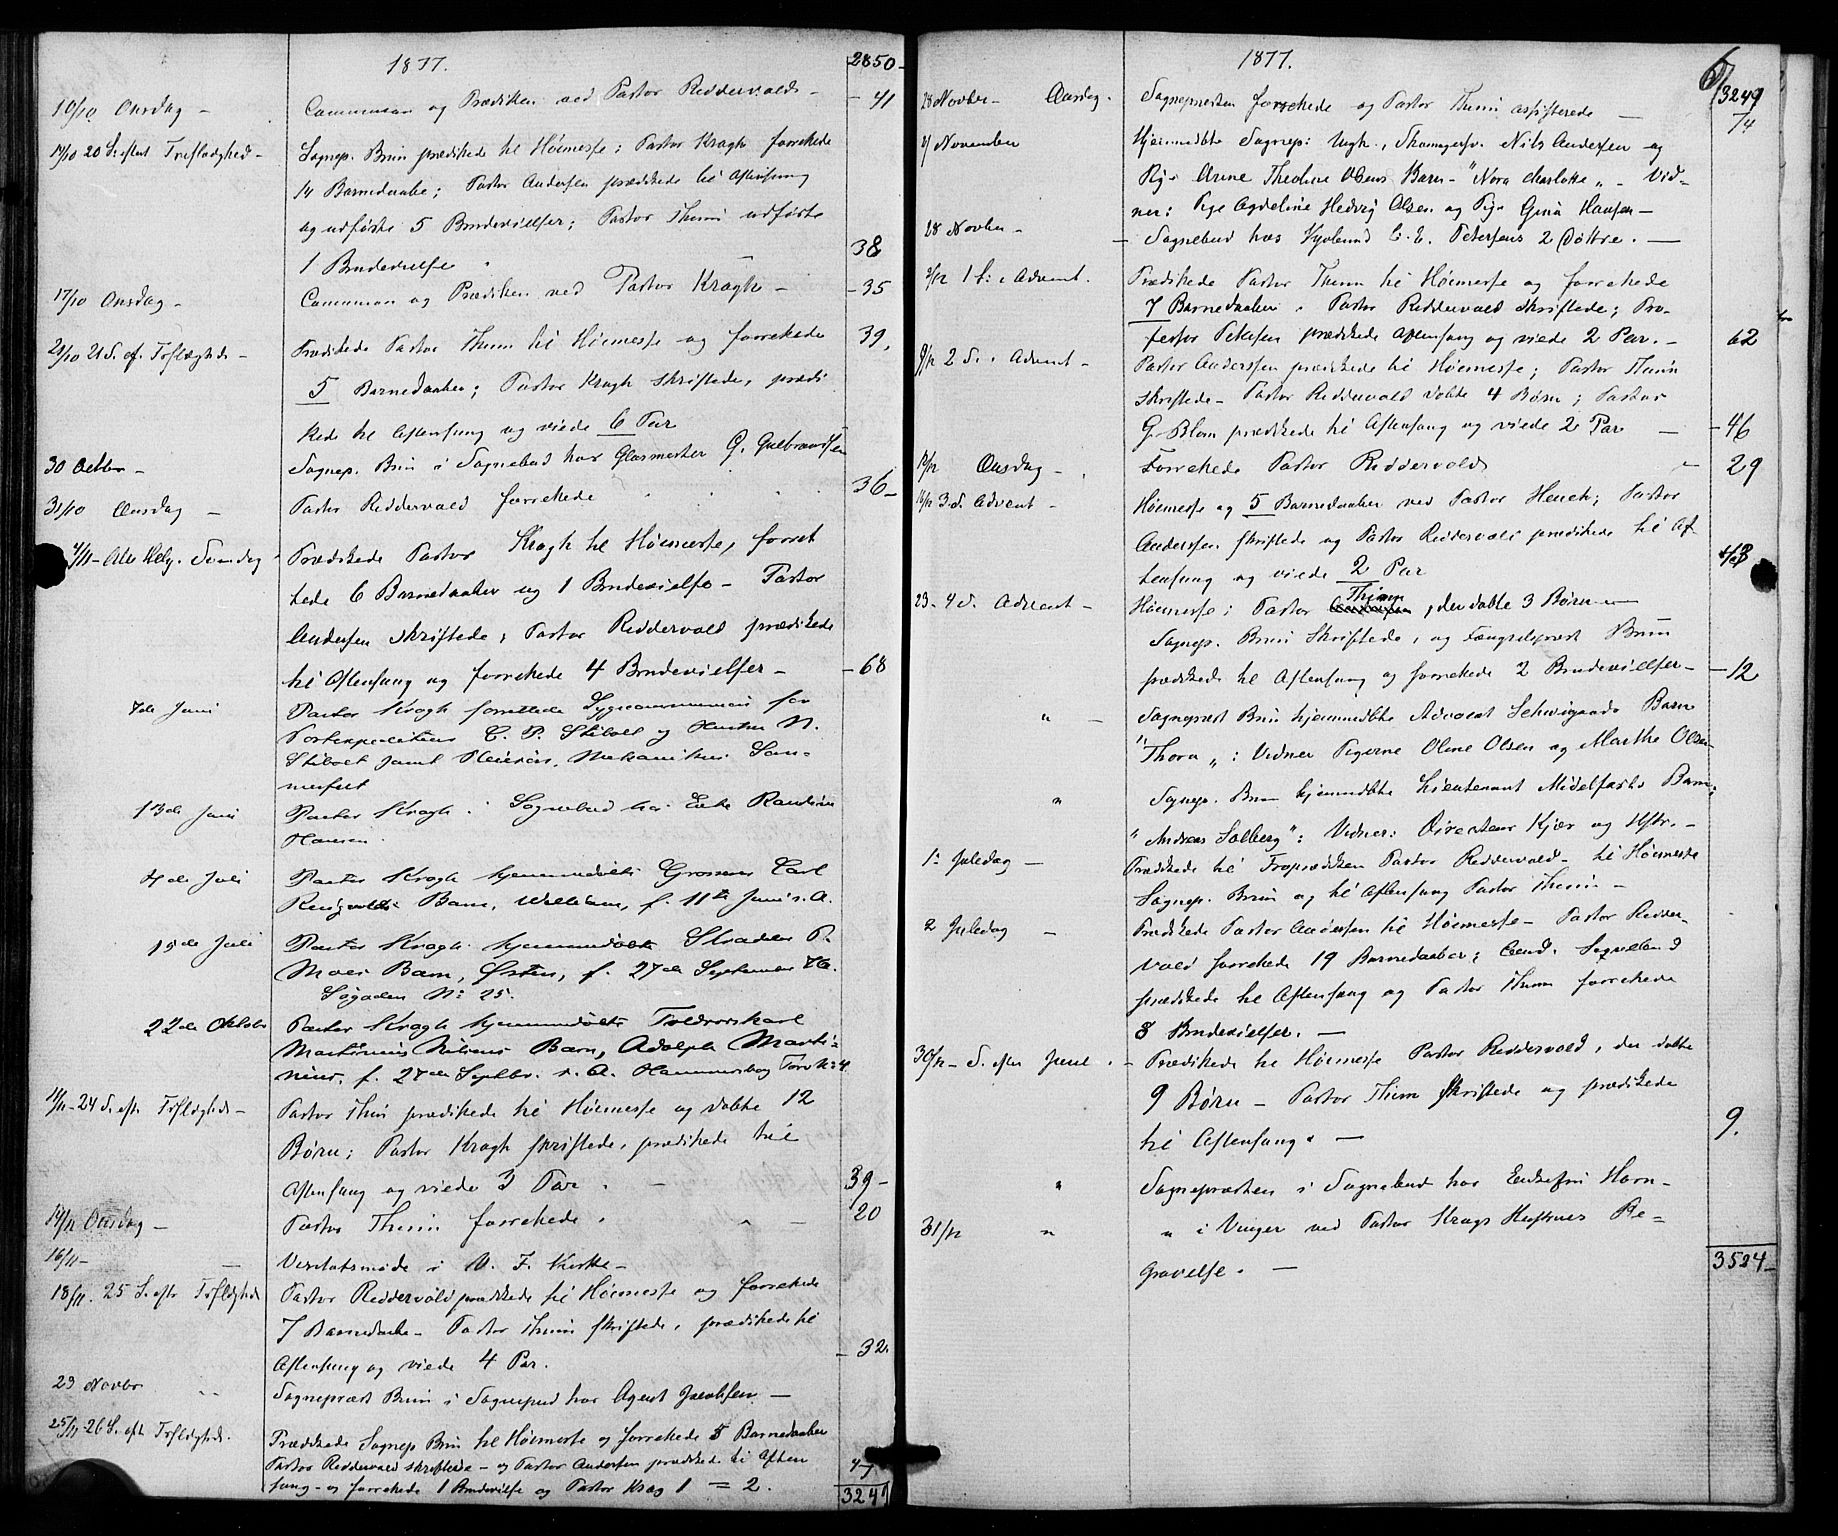 1877.
2850-
10/10 Onsdag - Communion og Prædiken ved Pastor Reddervold - - 41
14/10 20 S. efter Trefoldighed - Sognep. Brun prædikede til Høimesse; Pastor Kragh forrettede
14 Barnedaabe; Pastor Andersen prædikede til Aftensang
og udførte 5 Brudevielser; Pastor Thinn udførte
1 Brudevielse 38
17/10 Onsdag - Communion og Prædiken ved Pastor Kragh - - 35
21/10 21 S. ef. Trefoldighed - Prædikede Pastor Thinn til Høimesse og forrettede 39.
5 Barnedaaber; Pastor Kragh skriftede, prædi
kede til Aftensang og viede 6 Par
30 Octbr - Sognep. Brun i Sognebud hos Glasmester G. Gulbrandsen
31/10 Onsdag - Pastor Reddervold forrettede 36-
4/11 - Alle Helg. Søndag - Prædikede Pastor Kragh til Høimesse, forret
tede 6 Barnedaaber og 1 Brudevielse - Pastor
Andersen skriftede; Pastor Reddervold prædikede
til Aftensang og forrettede 4 Brudevielser - - 68
7de Juni Pastor Kragh forrettede Sygecommunion for
Postexpeditør C. P. Stibolt og Hustru N.
Stibolt samt Mekanikus Som-
merfelt
13de Juni Pastor Kragh i Sognebud hos Enke
Hansen.
4de Juli Pastor Kragh hjemmedøbte Grosserer Carl
Barn, William, f. 11te Juni s. A.
15de Juli Pastor Kragh hjemmedøbte P.
Moes Barn, Østen, f. 27de September 76.
No 25.
22de Oktober Pastor Kragh hjemmedøbte Toldroerskarl
Martinius Nilsens Barn, Adolph Marti-
nius, f. 27de Septbr. s. A. Hammersborg Torv No 4
11/11 - 24 S. eft. Trefoldighed - Pastor Thinn prædikede til Høimesse og døbte 12
Børn; Pastor Kragh skriftede, prædikede til
Aftensang og viede 3 Par. - 39-
14/11 Onsdag - Pastor Thinn forrettede. - 20
16/11 - Visitatsmøde i V. F. Kirke -
18/11. 25 S. eft. Trefoldighed Pastor Reddervold prædikede til Høimesse og forrettede
7 Barnedaabe - Pastor Thinn skriftede, prædikede til
Aftensang og viede 4 Par. - 32.
23 Novbr Sognepræst Brun i Sognebud hos Agent Jacobsen -
25/11 - 26 S. eft. Trefoldighed. Prædikede Sognep. Brun til Høimesse og forrettede 5 Barnedaaber
Pastor Reddervold skriftede - og Pastor Andersen prædikede til Aften
sang - og forrettede 1 Brudevielse og Pastor Krag 1 = 2. 47
3249
1877.
6
3249
28 Novber - Onsdag. Sognepresten forrettede og Pastor Thinn assisterede - 74
2/ November Hjemmedøbte Sognep: Nils Andersen og
Pige Anne Theoline Olsens Barn - "Nora Charlotte" - Vid-
ner: Pige Agdeline Hedvig Olsen og Pige Gina Hansen -
28 Novbr - - Sognebud hos E. E. Petersens 2 Døttre. -
2/12 1 S. i Advent. Prædikede Pastor Thinn til Høimesse og forrettede
7 Barnedaaber. Pastor Reddervold skriftede; Pro-
fessor Petersen prædikede Aftensang og viede 2 Par. - 62
9/12 2 S. i Advent - Pastor Anderssen prædikede til Høimesse; Pastor Thinn
skriftede - Pastor Reddervold døbte 4 Børn; Pastor
G. Blom prædikede til Aftensang og viede 2 Par - - 46
12/12 Onsdag - Forrettede Pastor Reddervold - 29
16/12 3 S. Advent - Høimesse og 5 Barnedaaber ved Pastor Heuch; Pastor
Anderssen skriftede og Pastor Reddervold prædikede til Af-
tensang og viede 2 Par 48
23 - 4 S. Advent - Høimesse; Pastor Thinn, der døbte 3 Børn -
Sognep. Brun skriftede, og Fængselspræst Bruun
prædikede til Aftensang og forrettede 2 Brudevielser - - 12
" - Sognepræst Brun hjemmedøbte Advocat Schweigaards Barn
"Thora": Vidner Pigerne Oline Olsen og Marthe Olsen -
" Sognep. Brun hjemmedøbte Lieutenant Midelfarts Barn:
"Andreas Solberg": Vidner: Directeur Kjær og Hstr. -
1ste Juledag - Prædikede til Froprædiken Pastor Reddervold - til Høimesse
Sognep. Brun og til Aftensang Pastor Thinn -
2 Juledag - Prædikede Pastor Andersen til Høimesse - Pastor Redder-
vold forrettede 19 Barnedaaber; Cand.
prædikede til Aftensang og Pastor Thinn forrettede
8 Brudevielser. -
30/12 - S. efter Juul. - Prædikede til Høimesse Pastor Reddervold, der døbte
9 Børn - Pastor Thinn skriftede og prædikede
til Aftensang. - 9.
" Sognepræsten i Sognebud hos Enkefru Horn -
31/12 " " i Vinger ved Pastor Krags Hustrues Be-
gravelse. - 3524-